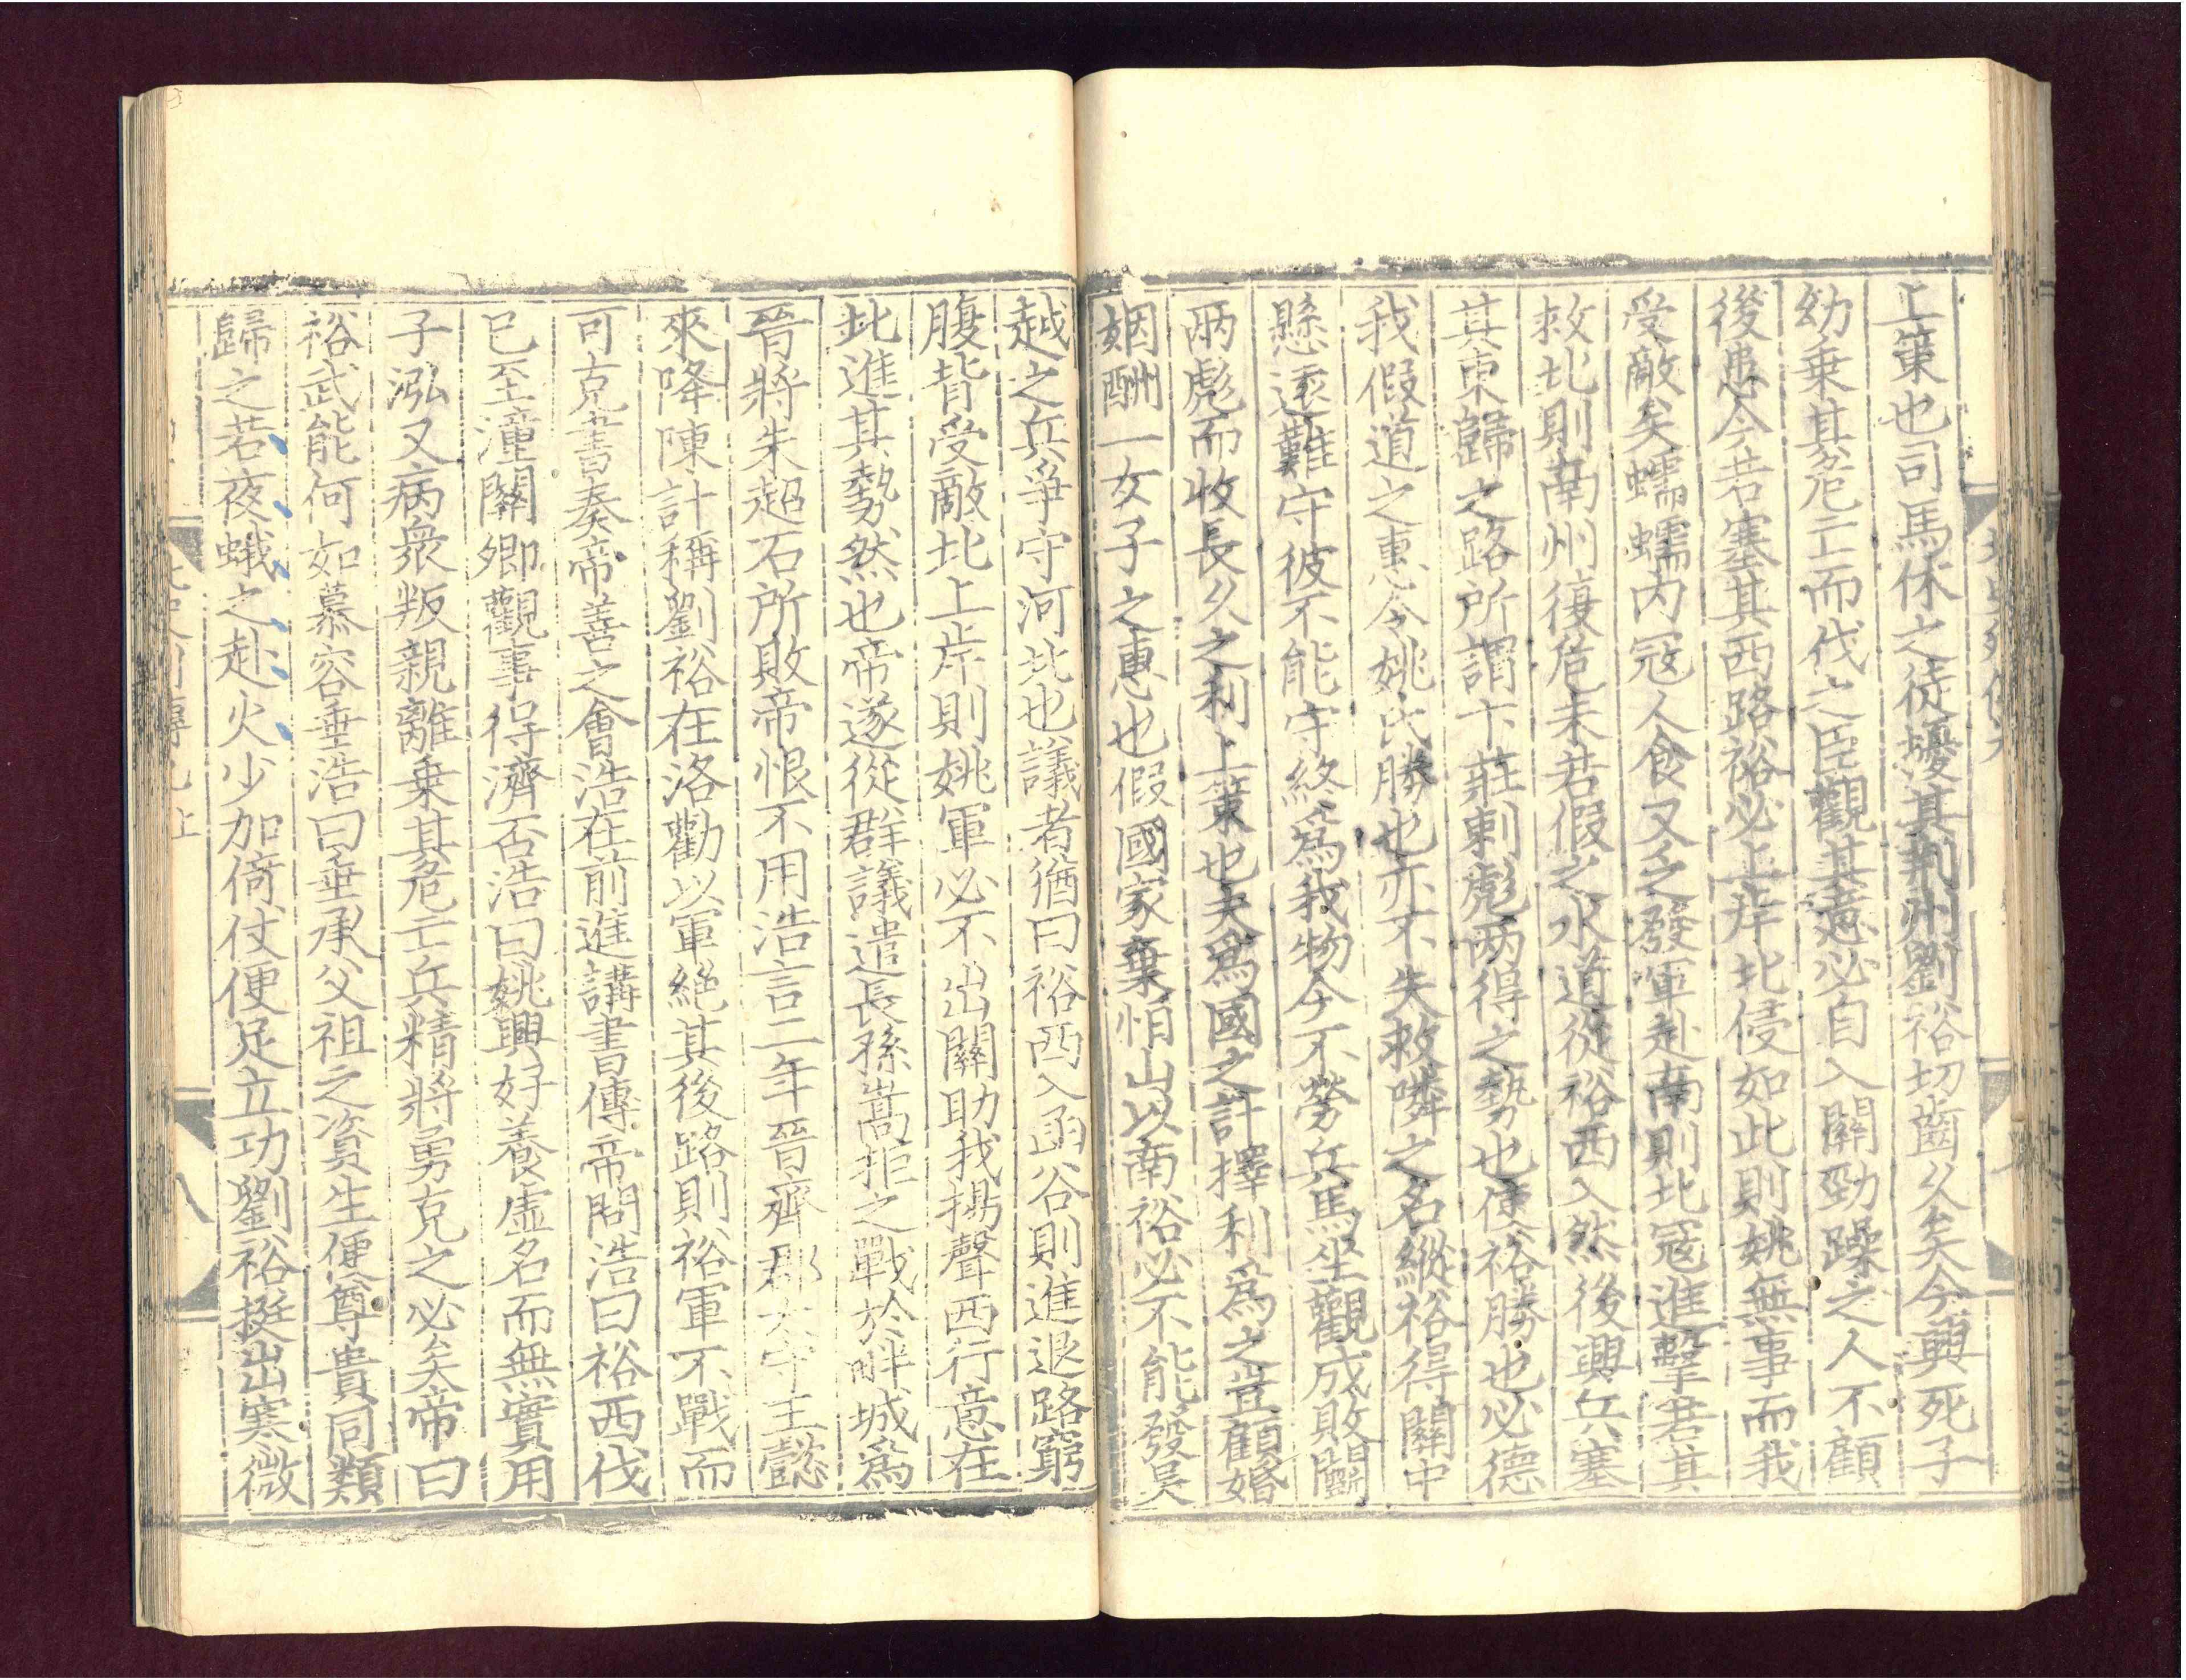 上策也司馬休之徒擾其荆州劉裕切齒乆矣今興死子
幼乗其危亡而伐之臣觀其意必自入關勁躁之人不顧
後患今若塞其西路裕必上岸北侵如此則姚無事而我
受敵矣蠕蠕内冦人食又乏發軍赴南則北冦進擊若其
救北則南州復危未若假之水道從裕西入然後興兵塞
其東歸之路所謂卞莊刺彪兩得之勢也使裕勝也必德
我假道之惠令姚氏勝也亦不失救隣之名縱裕得關中
懸逺難守彼不能守終爲我物今不勞兵馬坐觀成敗鬬
兩彪而收長乆之利上策也夫爲國之計擇利爲之豈顧婚
姻酬一女子之惠也假國家棄恒山以南裕必不能發吴
越之兵爭守河北也議者猶曰裕西入函谷則進退路窮
腹背受敵北上岸則姚軍必不出關助我揚聲西行意在
北進其勢然也帝遂從群議遣長孫嵩拒之戰於畔城爲
晉將朱超石所敗帝恨不用浩言二年晉齊郡太守王懿
來降陳計稱劉裕在洛勸以軍絶其後路則裕軍不戰而
可克書奏帝善之會浩在前進講書傳帝問浩曰裕西伐
巳至潼關卿觀事得濟否浩曰姚興好養虚名而無實用
子泓又病衆叛親離乗其危亡兵精將勇克之必矣帝曰
裕武能何如慕容垂浩曰垂承父祖之資生便尊貴同類
歸之若夜蛾之赴火少加倚仗便足立功劉裕挺出寒微
八